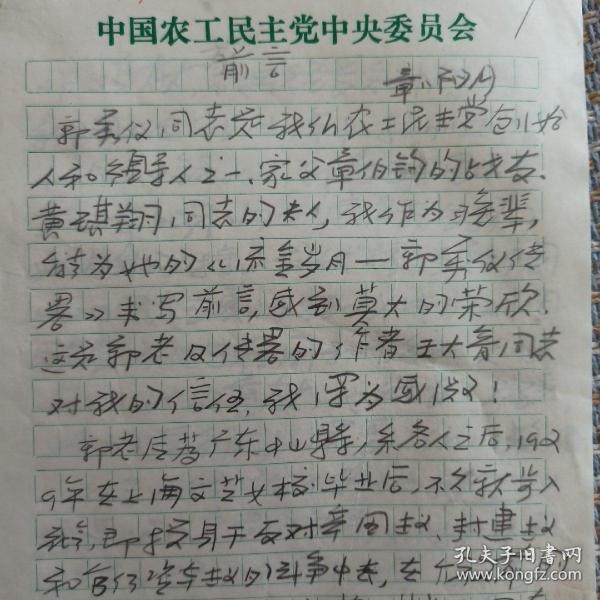 中国农工民主党中央委员会
前言
郭秀仪同志是我们农工民主党创始
人和领导人之一、家父章伯钧的战友、
黄琪翔同志的夫人，我作为晚辈，
能为她的《流金岁月—郭秀仪传
略》书写前言，感到莫大的荣欣。
这是郭老及传略的作者王大鲁同志
对我的信任，我深为感谢！
郭老原籍广东中山县，系名人之后，192
9年在上海文艺女校毕业后，不久就步入
社会，即投身于反对帝国主义、封建主义
和官僚资本主义的斗争中去，在
孔夫子旧书网
www.kongfz.com